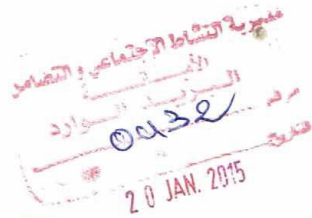 مديرية النشاط الاجتماعي و التضامن
الأمانـــــة
البريـــد الـــوارد
رقم 0432
20 JAN. 2015